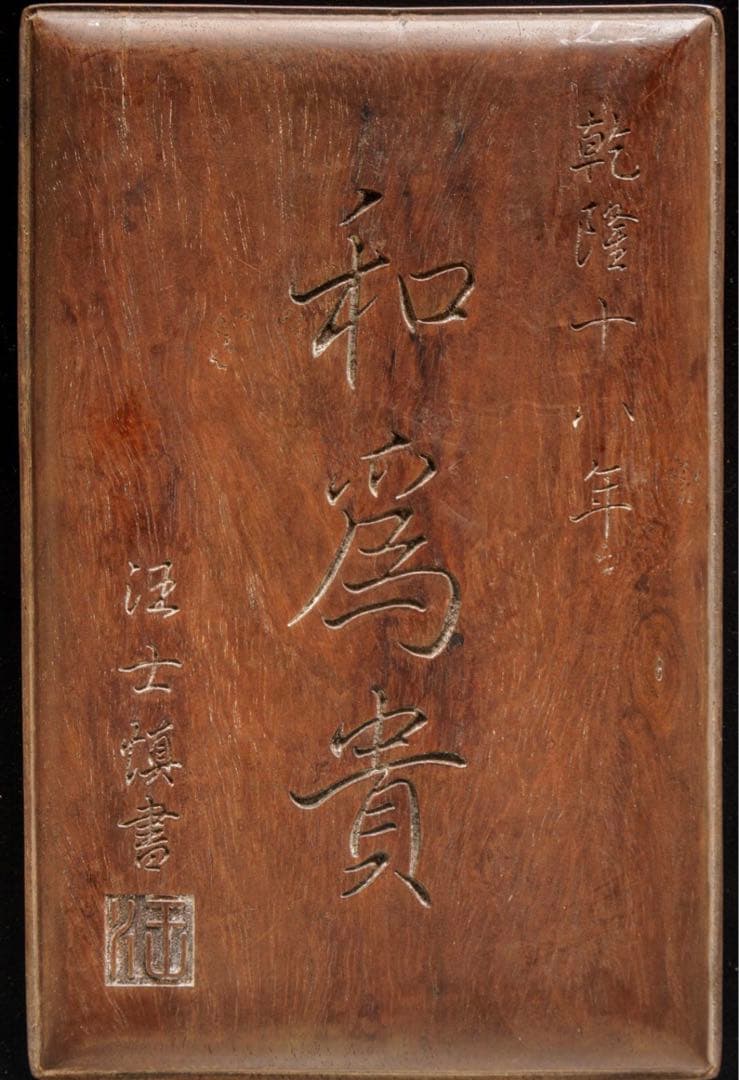 乾隆十八年
和為貴
汪士慎書
汪